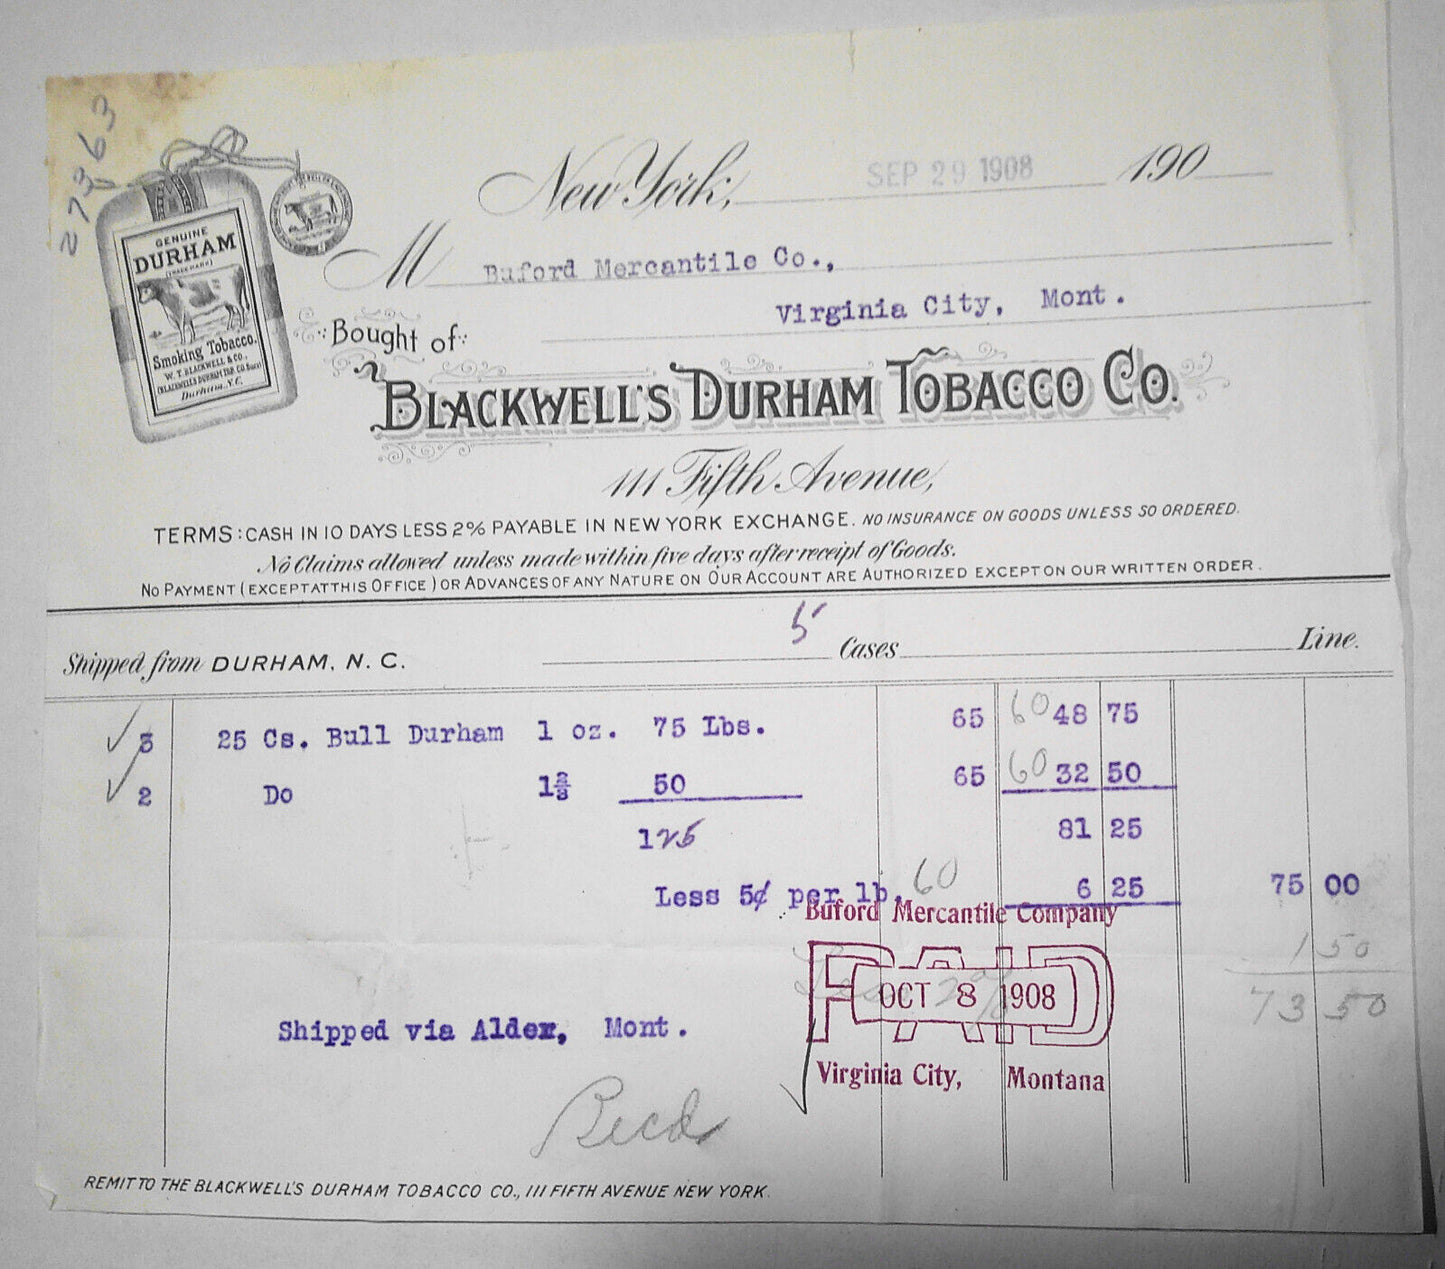 27363
GENUINE
DURHAM
(TRADE MARK)
Smoking Tobacco.
W. T. BLACKWELL & CO.
Durham, N.C.
New York, SEP 29 1908 190
M Buford Mercantile Co.,
Virginia City, Mont.
Bought of
BLACKWELL'S DURHAM TOBACCO CO.
111 Fifth Avenue,
TERMS: CASH IN 10 DAYS LESS 2% PAYABLE IN NEW YORK EXCHANGE. NO INSURANCE ON GOODS UNLESS SO ORDERED.
No Claims allowed unless made within five days after receipt of Goods.
NO PAYMENT (EXCEPT AT THIS OFFICE) OR ADVANCES OF ANY NATURE ON OUR ACCOUNT ARE AUTHORIZED EXCEPT ON OUR WRITTEN ORDER.
Shipped from DURHAM, N. C. 5 Cases Line.
3 25 Cs. Bull Durham 1 oz. 75 Lbs. 65 60 48 75
2 Do 1⅔ 50 65 60 32 50
125 81 25
Less 5¢ per lb. 60 6 25 75 00
Buford Mercantile Company
1 50
Less 2%
PAID
OCT 8 1908
73 50
Shipped via Alder, Mont.
Virginia City, Montana
Recd
REMIT TO THE BLACKWELL'S DURHAM TOBACCO CO., 111 FIFTH AVENUE NEW YORK.